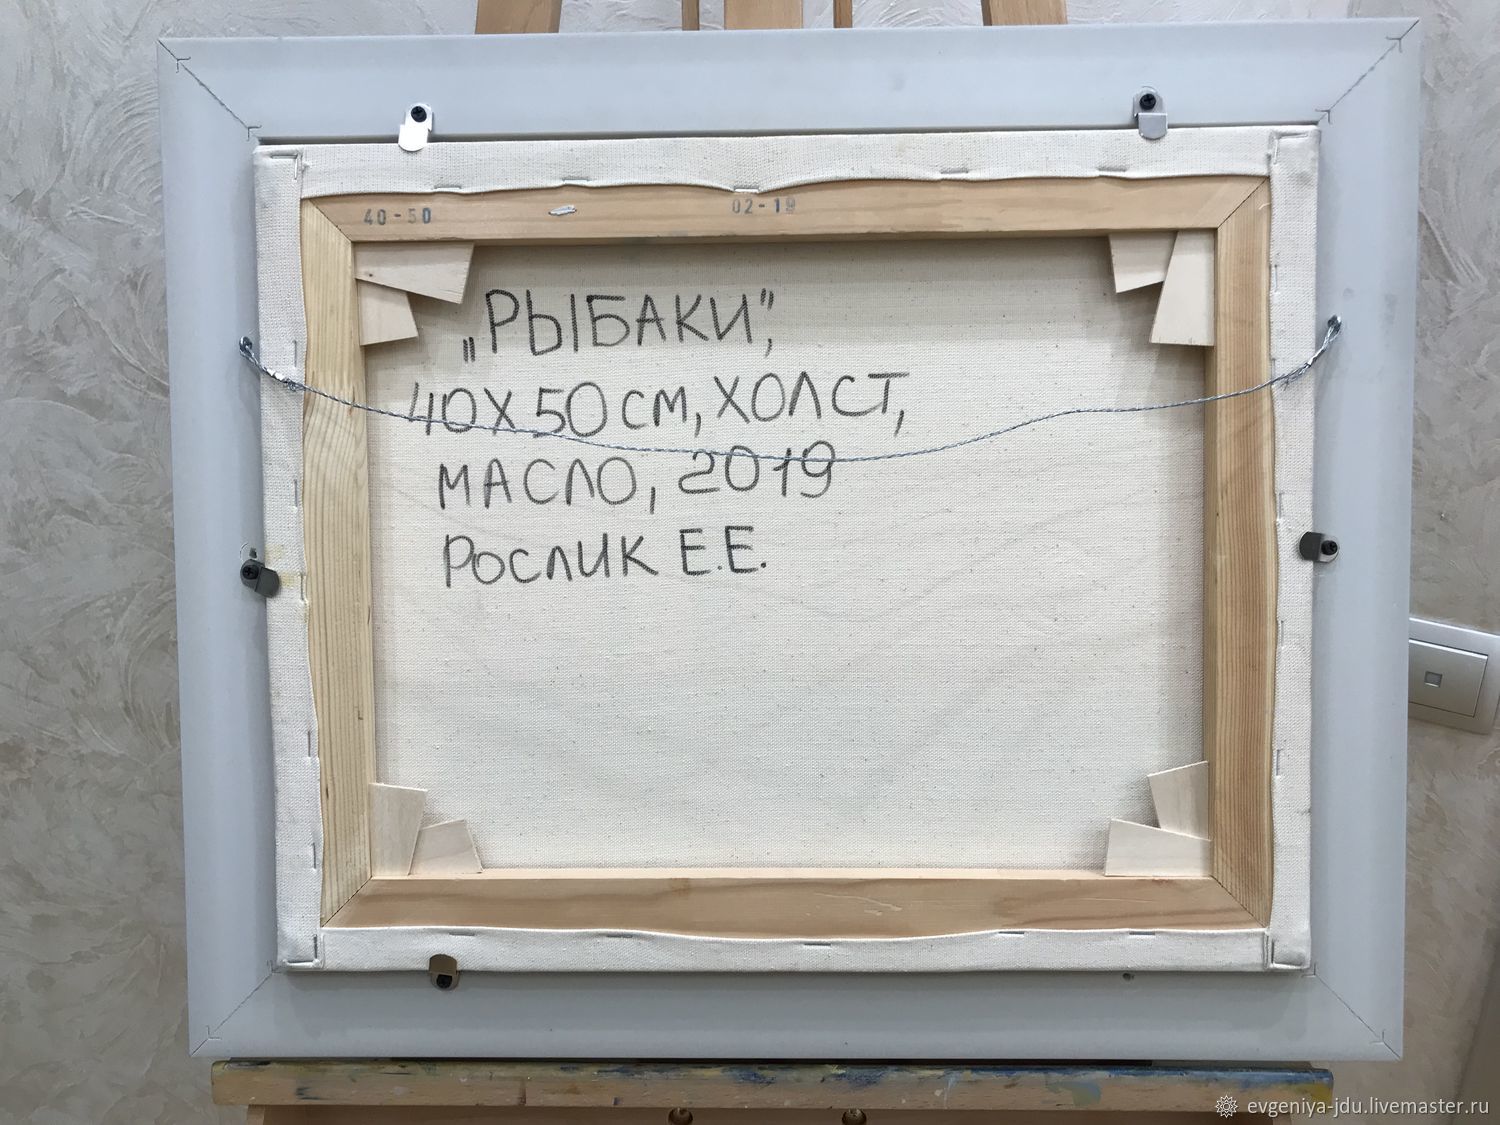 40-50
02-19
„РЫБАКИ",
40Х50СМ, ХОЛСТ,
МАСЛО, 2019
РОСЛИК Е.Е.
evgeniya-jdu.livemaster.ru